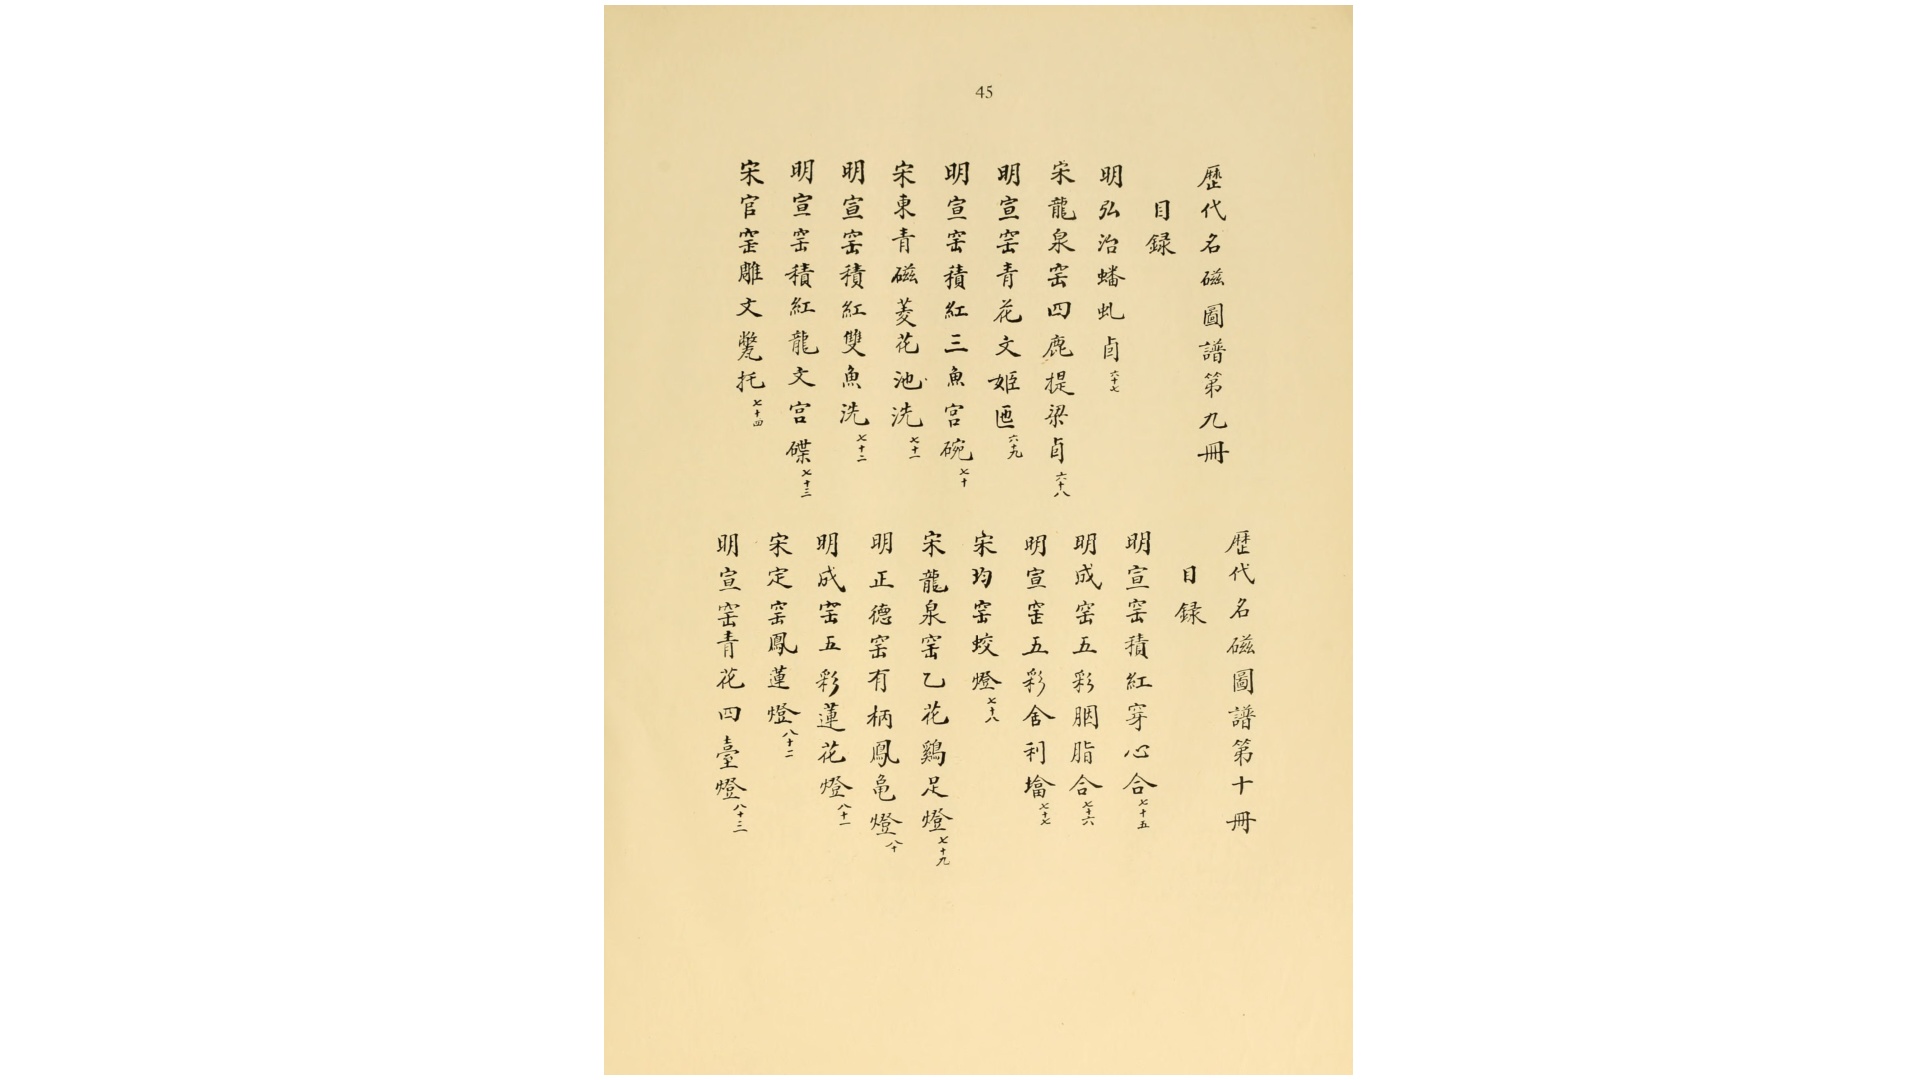 45
歷代名磁圖譜第九冊
目録
明弘治蟠虬卣六十七
宋龍泉窑四鹿提梁卣六十八
明宣窑青花文姬匜六十九
明宣窑積紅三魚宫碗七十
宋東青磁菱花池洗七十一
明宣窑積紅雙魚洗七十二
明宣窑積紅龍文宫碟七十三
宋官窑雕文甓托七十四
歷代名磁圖譜第十冊
目録
明宣窑積紅穿心合七十五
明成窑五彩胭脂合七十六
明宣窑五彩舍利墖七十七
宋均窑蛟燈七十八
宋龍泉窑乙花鷄足燈七十九
明正德窑有柄鳳亀燈八十
明成窑五彩蓮花燈八十一
宋定窑鳳蓮燈八十二
明宣窑青花四臺燈八十三